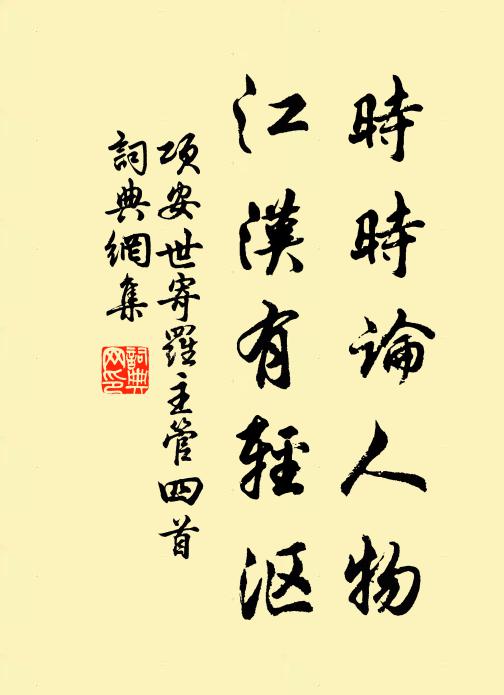 時時論人物
江漢有輕漚
項安世寄羅主管四首
詞典網集
詞典
网印